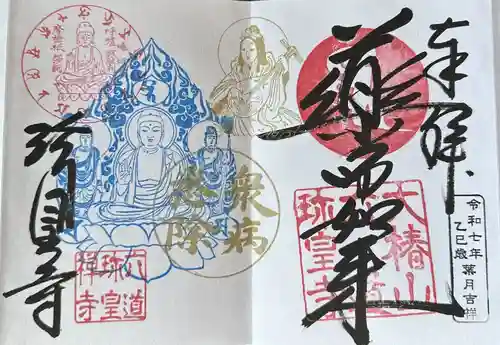 奉拝
薬師如来
令和七年
乙巳歳葉月吉祥
大椿山
六道
珍皇寺
衆病
悉除
珍皇寺
六道
珍皇
禅寺